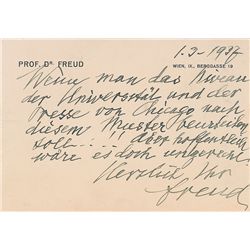 PROF. DR FREUD
1.3-1937
WIEN, IX., BERGGASSE 19
Wenn man das Niveau
der Universität und der
Presse von Chicago nach
diesem Muster beurteilen
soll..... aber hoffentlich
wäre es doch ungerecht.
Herzlich Ihr
Freud